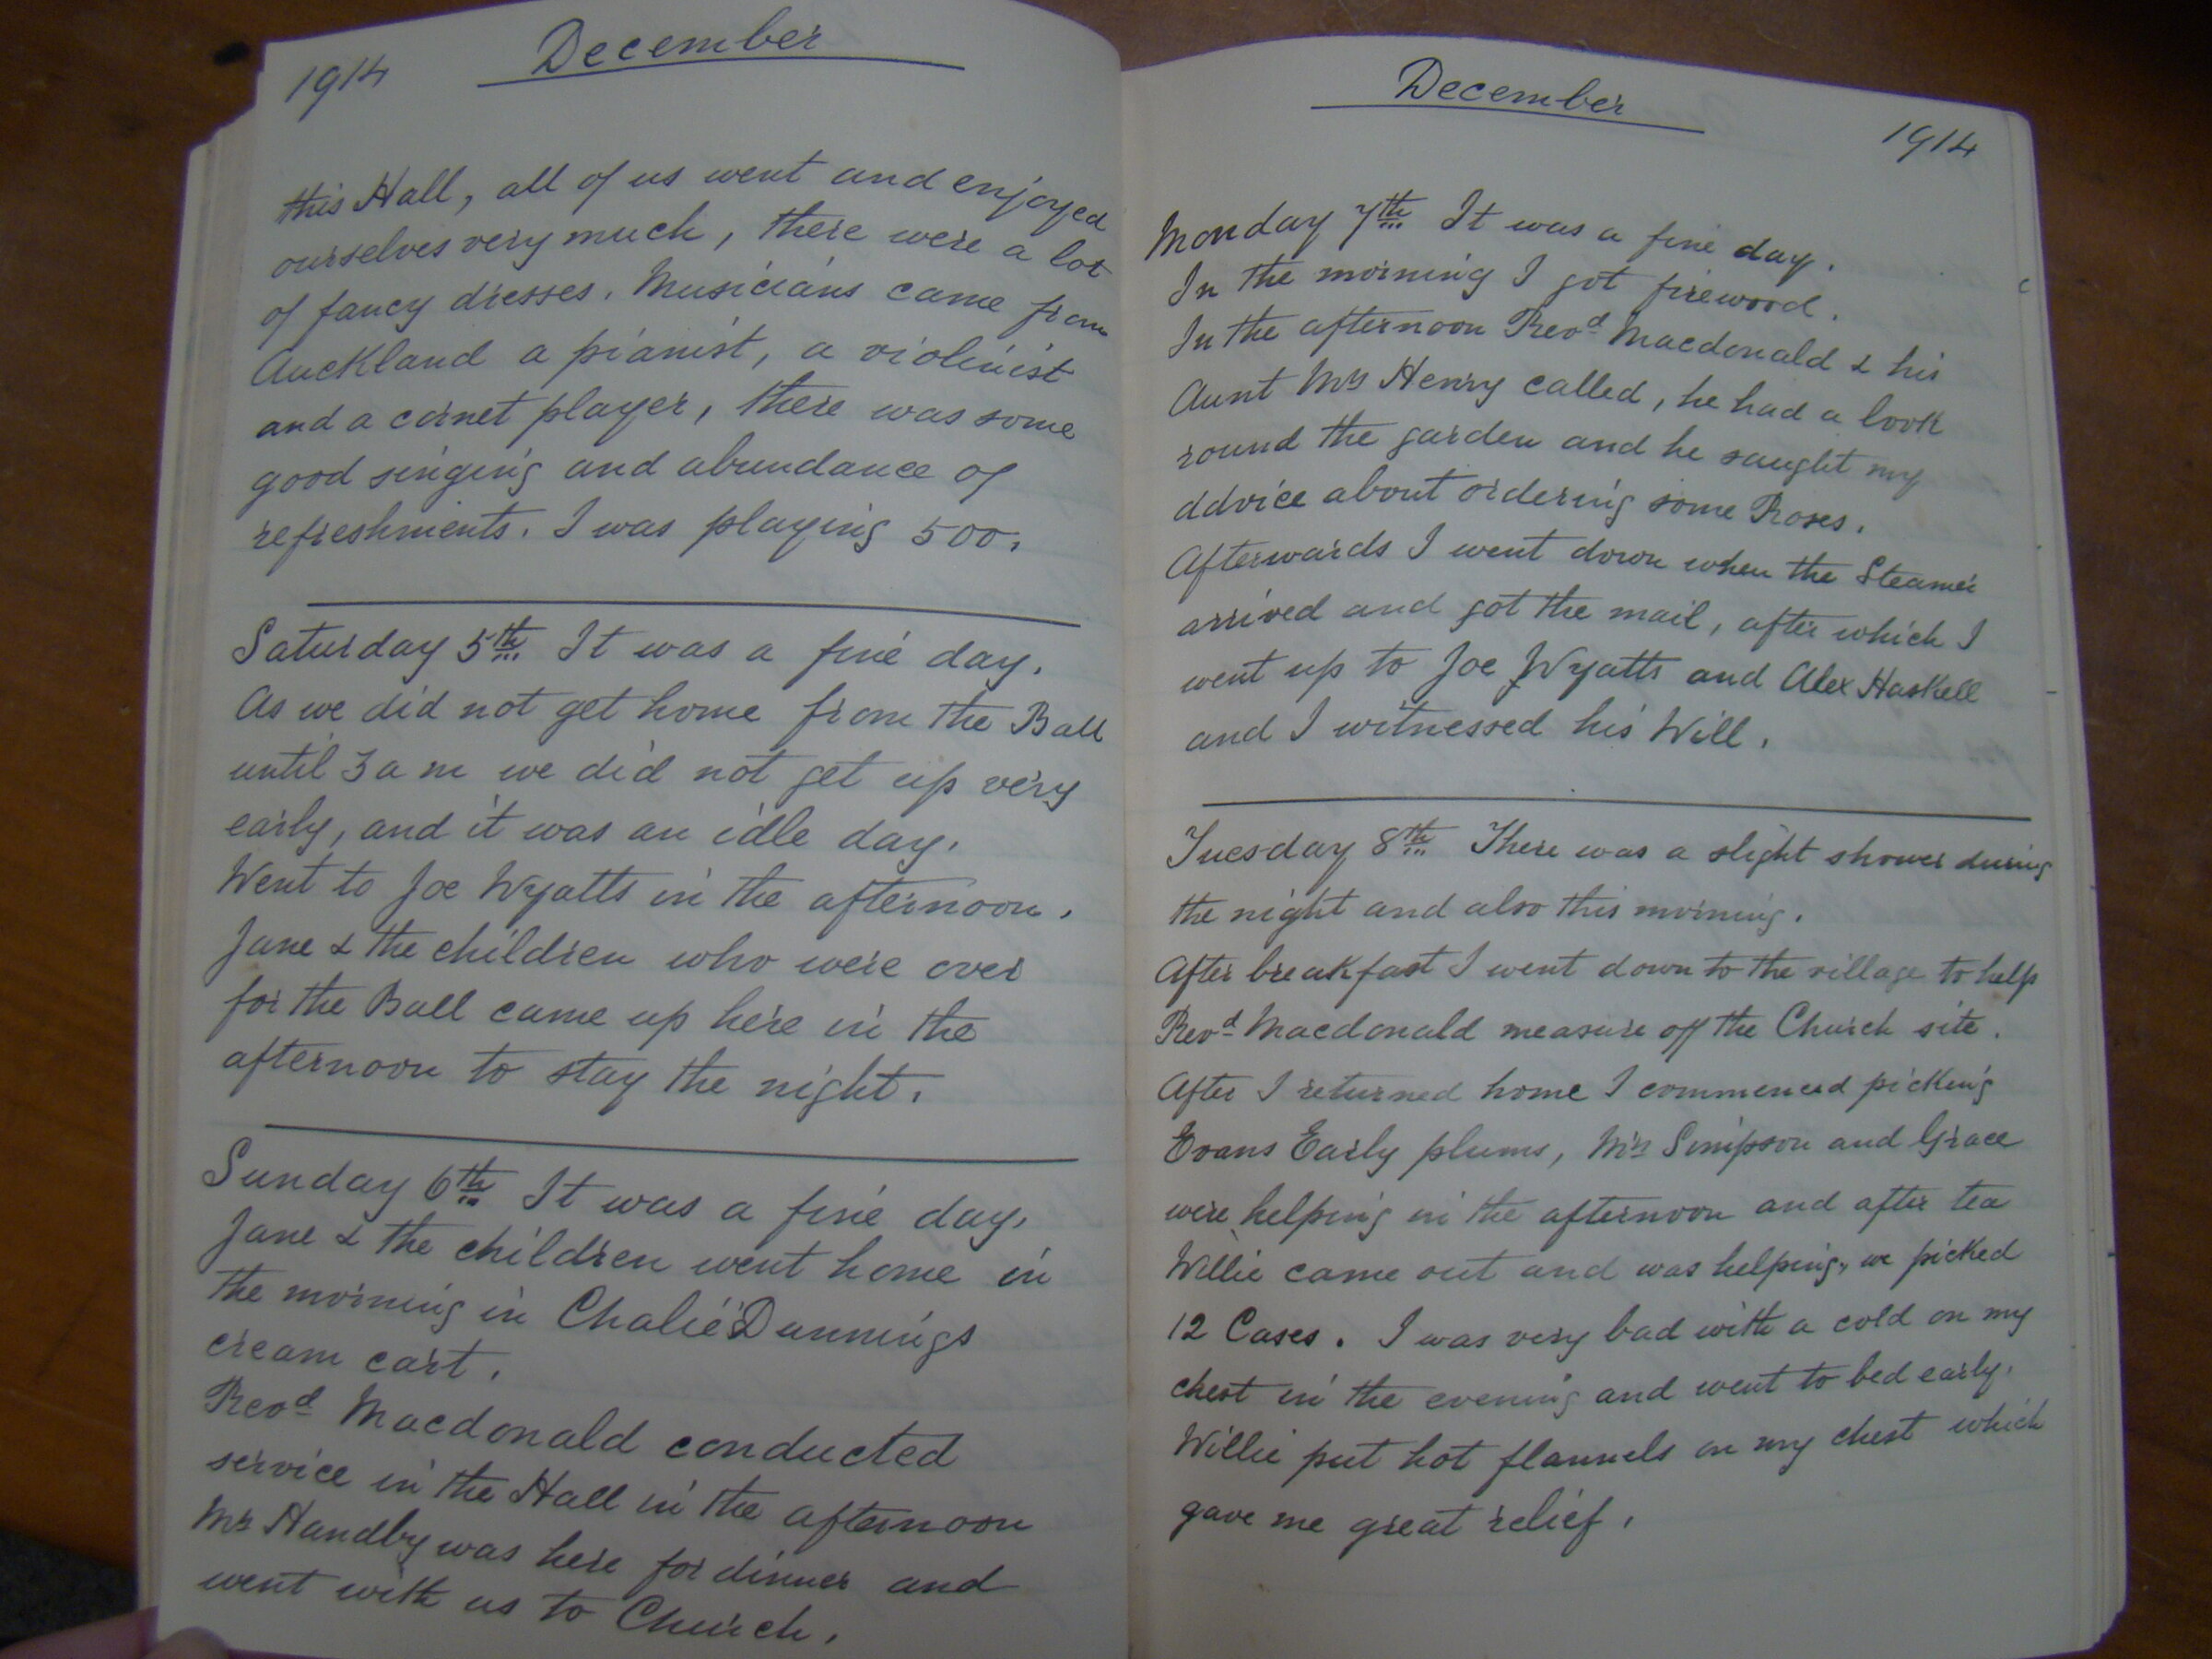 1914 December
this Hall, all of us went and enjoyed
ourselves very much, there were a lot
of fancy dresses. Musicians came from
Auckland a pianist, a violinist
and a cornet player, there was some
good singing and abundance of
refreshments. I was playing 500.
Saturday 5th It was a fine day.
As we did not get home from the Ball
until 3 a m we did not get up very
early, and it was an idle day.
Went to Joe Wyatts in the afternoon.
Jane & the children who were over
for the Ball came up here in the
afternoon to stay the night.
Sunday 6th It was a fine day.
Jane & the children went home in
the morning in Chalie Dunnings
cream cart.
Revd Macdonald conducted
service in the Hall in the afternoon
Mr Handby was here for dinner and
went with us to Church.
December 1914
Monday 7th It was a fine day.
In the morning I got firewood.
In the afternoon Revd Macdonald & his
Aunt Mrs Henry called, he had a look
round the garden and he saught my
advice about ordering some Roses.
Afterwards I went down when the Steamer
arrived and got the mail, after which I
went up to Joe Wyatts and Alex Haskell
and I witnessed his Will.
Tuesday 8th There was a slight shower during
the night and also this morning.
After breakfast I went down to the village to help
Revd Macdonald measure off the Church site.
After I returned home I commenced picking
Evans Early plums, Mrs Simpson and Grace
were helping in the afternoon and after tea
Willie came out and was helping, we picked
12 Cases. I was very bad with a cold on my
chest in the evening and went to bed early.
Willie put hot flannels on my chest which
gave me great relief.